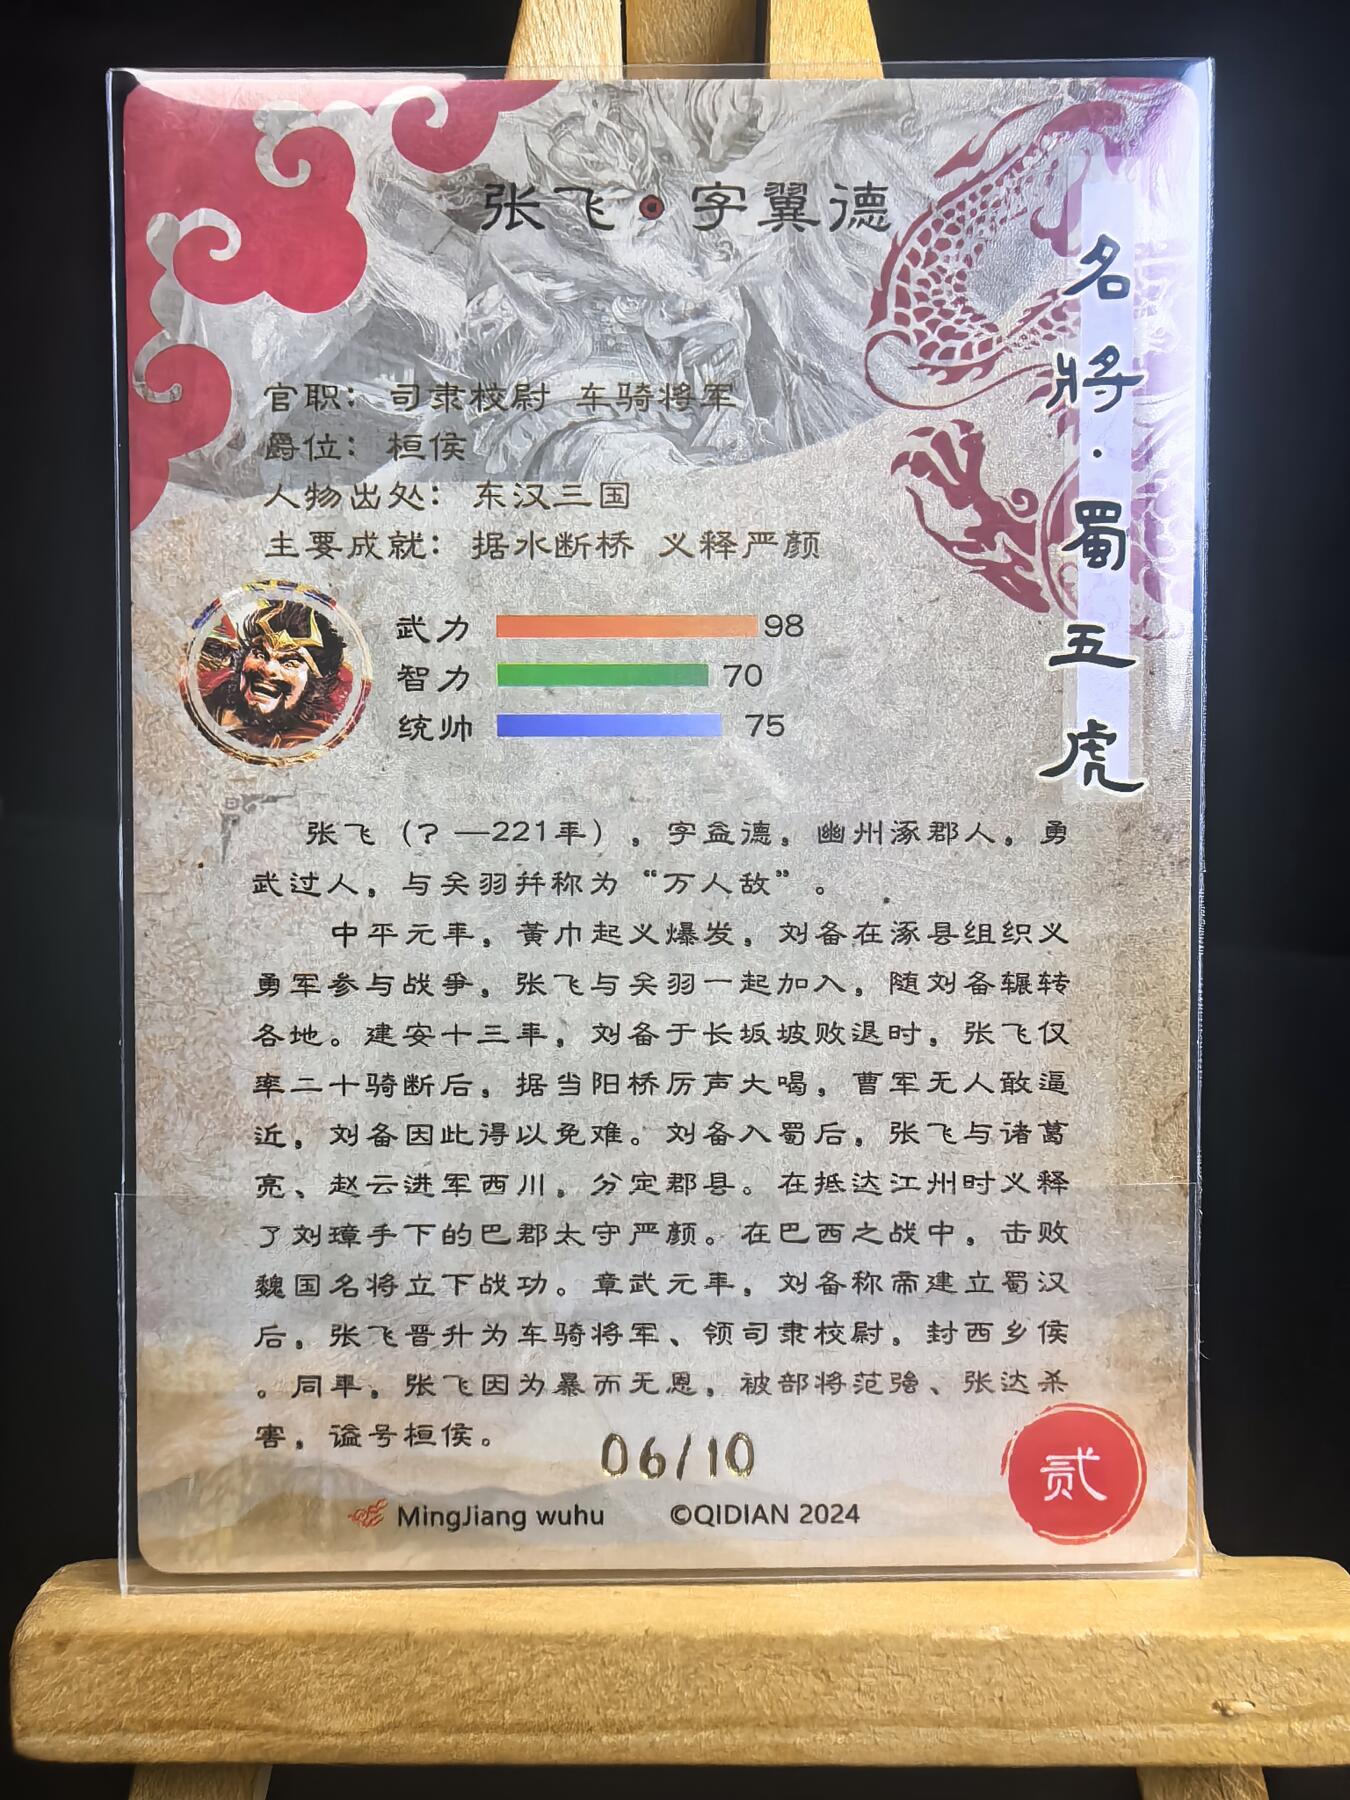 张飞·字翼德
名將·蜀五虎
官职：司隶校尉 车骑将军
爵位：桓侯
人物出处：东汉三国
主要成就：据水断桥 义释严颜
武力 98
智力 70
统帅 75
张飞（？—221年），字益德，幽州涿郡人，勇
武过人，与关羽并称为“万人敌”。
中平元年，黄巾起义爆发，刘备在涿县组织义
勇军参与战争，张飞与关羽一起加入，随刘备辗转
各地。建安十三年，刘备于长坂坡败退时，张飞仅
率二十骑断后，据当阳桥厉声大喝，曹军无人敢逼
近，刘备因此得以免难。刘备入蜀后，张飞与诸葛
亮、赵云进军西川，分定郡县。在抵达江州时义释
了刘璋手下的巴郡太守严颜。在巴西之战中，击败
魏国名将立下战功。章武元年，刘备称帝建立蜀汉
后，张飞晋升为车骑将军、领司隶校尉，封西乡侯
。同年，张飞因为暴而无恩，被部将范强、张达杀
害，谥号桓侯。
06/10
MingJiang wuhu ©QIDIAN 2024
贰